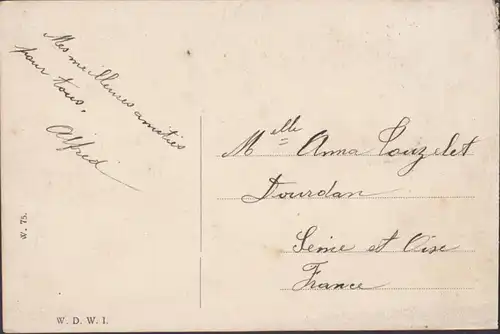 Mes meilleures amitiés
pour tous,
Alfred
Mlle Anna Louzelet
Dourdan
Seine et Oise
France
W. 75.
W. D. W. I.